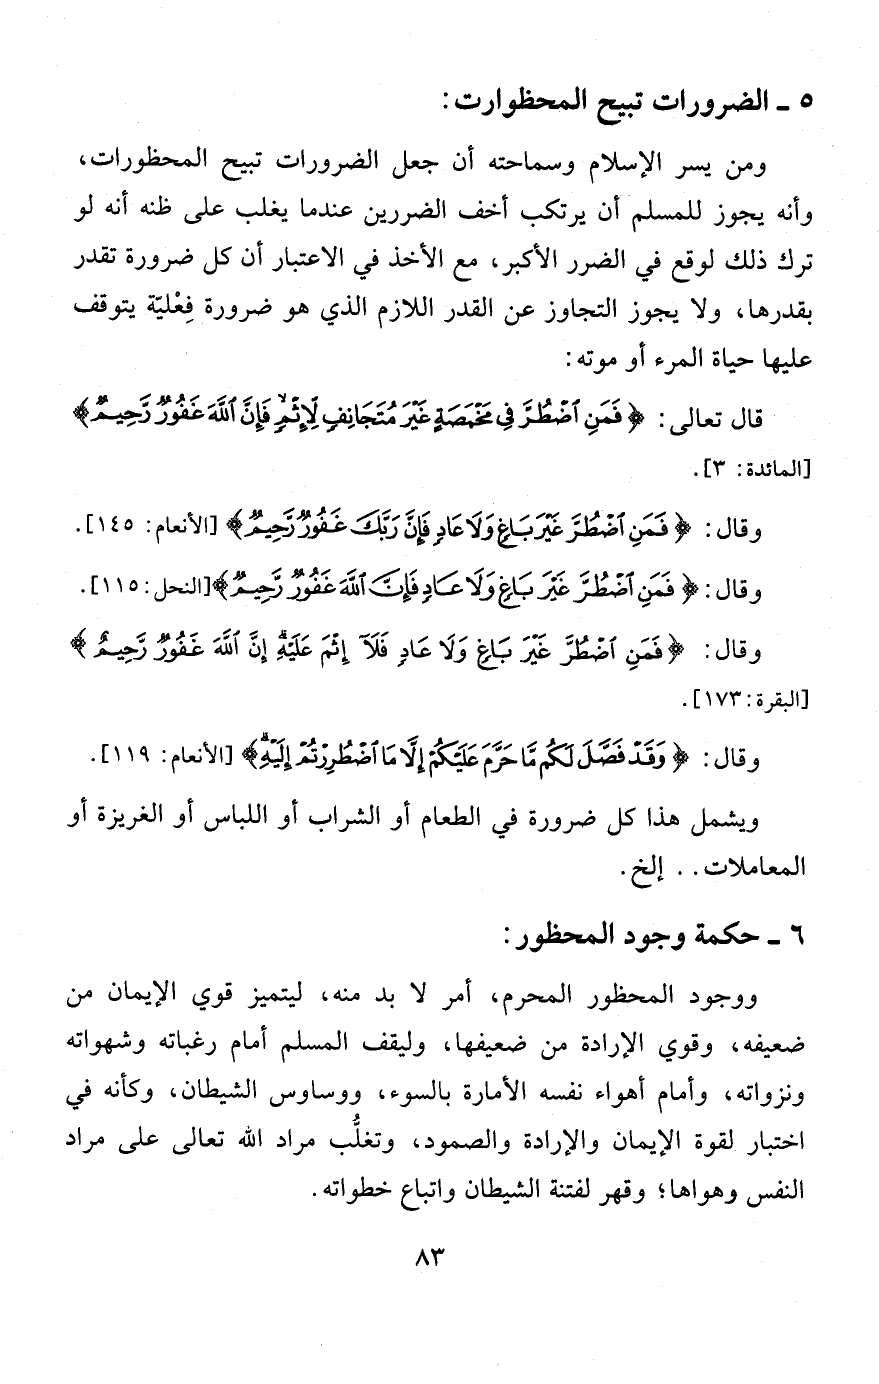 ٥ ـ الضرورات تبيح المحظوارت:
ومن يسر الإسلام وسماحته أن جعل الضرورات تبيح المحظورات،
وأنه يجوز للمسلم أن يرتكب أخف الضررين عندما يغلب على ظنه أنه لو
ترك ذلك لوقع في الضرر الأكبر، مع الأخذ في الاعتبار أن كل ضرورة تقدر
بقدرها، ولا يجوز التجاوز عن القدر اللازم الذي هو ضرورة فِعْليّة يتوقف
عليها حياة المرء أو موته:
قال تعالى: ﴿فَمَنِ ٱضْطُرَّ فِي مَخْمَصَةٍ غَيْرَ مُتَجَانِفٍ لِّإِثْمٍۙ فَإِنَّ ٱللَّهَ غَفُورٌ رَّحِيمٌ﴾
[المائدة: ٣].
وقال: ﴿فَمَنِ ٱضْطُرَّ غَيْرَ بَاغٍ وَلَا عَادٍ فَإِنَّ رَبَّكَ غَفُورٌ رَّحِيمٌ﴾ [الأنعام: ١٤٥].
وقال: ﴿فَمَنِ ٱضْطُرَّ غَيْرَ بَاغٍ وَلَا عَادٍ فَإِنَّ ٱللَّهَ غَفُورٌ رَّحِيمٌ﴾ [النحل: ١١٥].
وقال: ﴿فَمَنِ ٱضْطُرَّ غَيْرَ بَاغٍ وَلَا عَادٍ فَلَآ إِثْمَ عَلَيْهِۚ إِنَّ ٱللَّهَ غَفُورٌ رَّحِيمٌ﴾
[البقرة: ١٧٣].
وقال: ﴿وَقَدْ فَصَّلَ لَكُم مَّا حَرَّمَ عَلَيْكُمْ إِلَّا مَا ٱضْطُرِرْتُمْ إِلَيْهِۗ﴾ [الأنعام: ١١٩].
ويشمل هذا كل ضرورة في الطعام أو الشراب أو اللباس أو الغريزة أو
المعاملات.. إلخ.
٦ ـ حكمة وجود المحظور:
ووجود المحظور المحرم، أمر لا بد منه، ليتميز قوي الإيمان من
ضعيفه، وقوي الإرادة من ضعيفها، وليقف المسلم أمام رغباته وشهواته
ونزواته، وأمام أهواء نفسه الأمارة بالسوء، ووساوس الشيطان، وكأنه في
اختبار لقوة الإيمان والإرادة والصمود، وتغلُّب مراد الله تعالى على مراد
النفس وهواها؛ وقهر لفتنة الشيطان واتباع خطواته.
٨٣